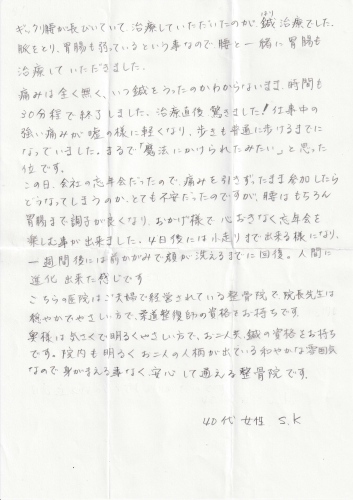 ギックリ腰が長びいていて治療していただいたのが、鍼治療でした。
脈をとり、胃腸も弱っているという事なので、腰と一緒に胃腸も
治療していただきました。
痛みは全く無く、いつ鍼をうったのかわからないまま、時間も
30分程で終了しました。治療直後驚きました!仕事中の
強い痛みが嘘の様に軽くなり、歩きも普通に歩けるまでに
なっていました。まるで「魔法にかけられたみたい」と思った
位です。
この日、会社の忘年会だったので、痛みを引きずったまま参加したら
どうなってしまうのか、とても不安だったのですが、腰はもちろん
胃腸まで調子が良くなり、おかげ様で心おきなく忘年会を
楽しむ事が出来ました。4日後には小走りまで出来る様になり、
一週間後には前かがみで顔が洗えるまでに回復。人間に
進化出来た感じです
こちらの医院はご夫婦で経営されている整骨院で、院長先生は
穏やかでやさしい方で、柔道整復師の資格をお持ちです
奥様は気さくで明るくやさしい方で、お二人共、鍼の資格をお持ち
です。院内も明るくお二人の人柄が出ている和やかな雰囲気
なので身がまえる事なく、安心して通える整骨院です。
40代 女性 S.K